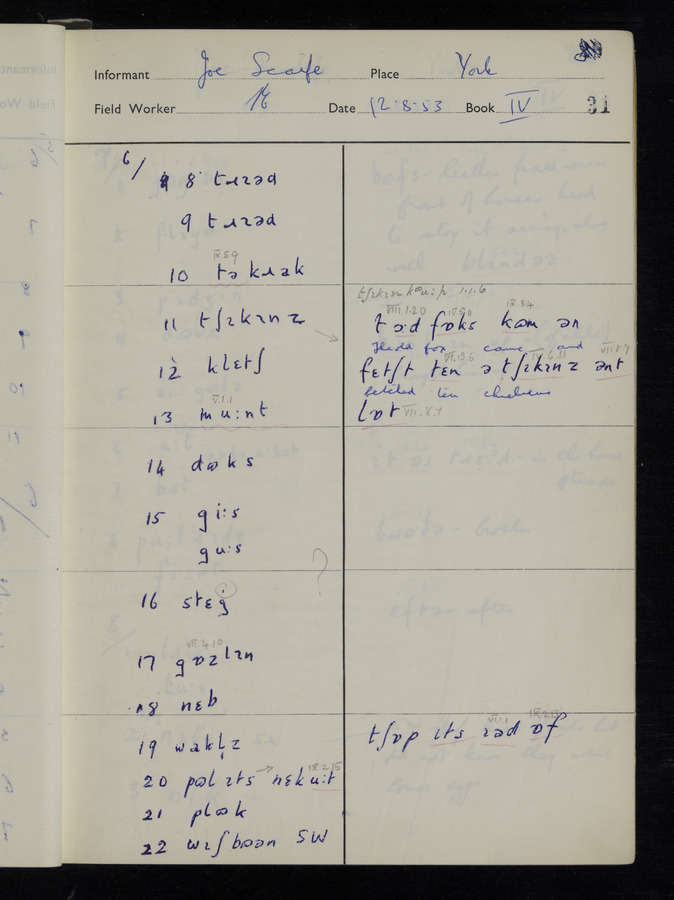 Informant Joe Scaife Place York
Field Worker Date 12.8.53 Book IV 31
6/ 8 tɹɪəd
9 tɹɪəd
IX.5.9
10 tə kɹak
11 tʃɪkɪnz
12 klɛtʃ
V.1.1
13 mu:nt
14 dʊks
15 gi:s
gu:s
16 stɛg
VII.4.10
17 gɒzlɪn
18 nɛb
19 watl̩z
IX.2.15
20 pʊl ɪts nɛk u:t
21 plʊk
22 wɪʃbʊən SW
I.1.6
VIII.1.20 IX.3.4
tɔ:d fɒks kʊm ən
thedd fox came and
VII.1.3.6 IV.6.11 VII.8.7
fɛtʃt tɛn ə tʃɪkɪnz ənt
fetched ten chickens
lɒt VII.8.7
VI.1.1 IX.2.13
tʃɒp ɪts ɪəd ɒf